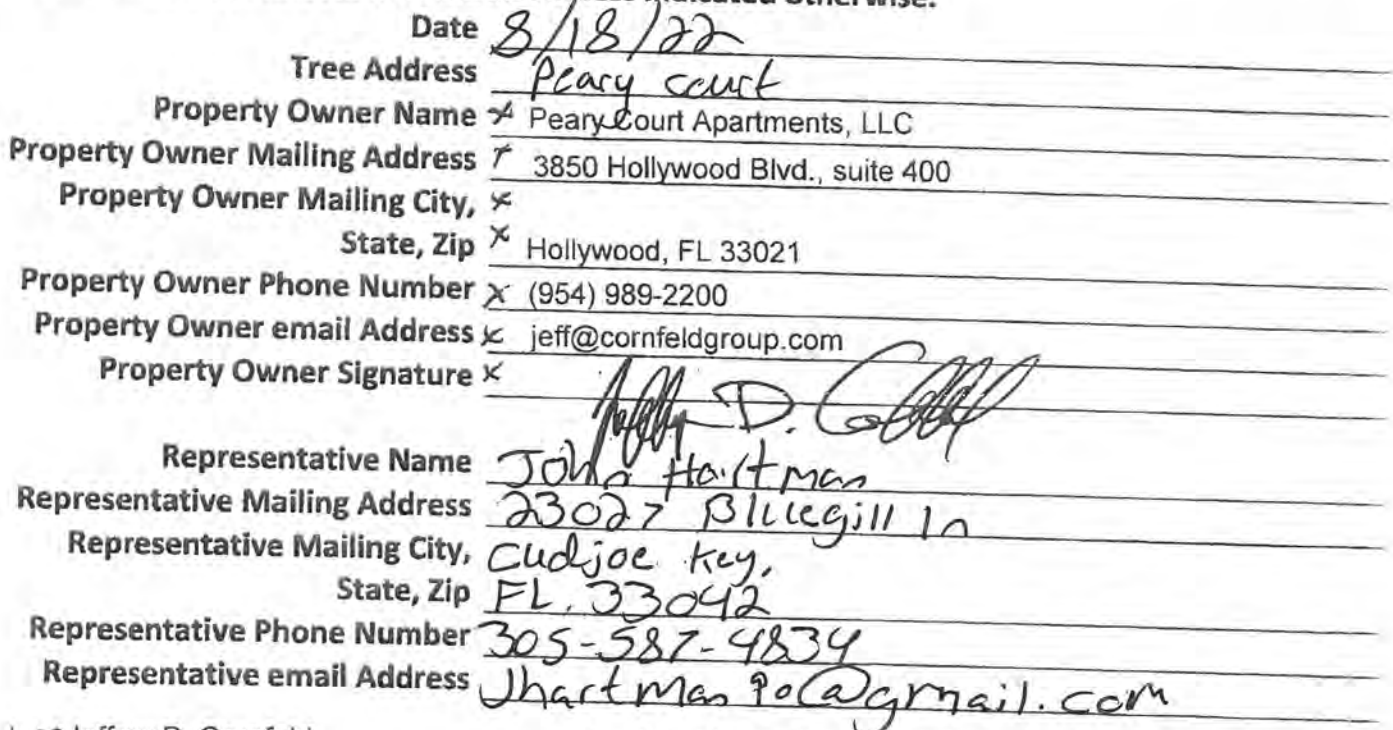 Indicated Otherwise.
Date 8/18/22
Tree Address Peary court
Property Owner Name x Peary Court Apartments, LLC
Property Owner Mailing Address x 3850 Hollywood Blvd., suite 400
Property Owner Mailing City, x
State, Zip x Hollywood, FL 33021
Property Owner Phone Number x (954) 989-2200
Property Owner email Address x jeff@cornfeldgroup.com
Property Owner Signature x
Representative Name John Hartman
Representative Mailing Address 23027 Bluegill ln
Representative Mailing City, Cudjoe Key,
State, Zip FL. 33042
Representative Phone Number 305-587-4834
Representative email Address Jhartman90@gmail.com